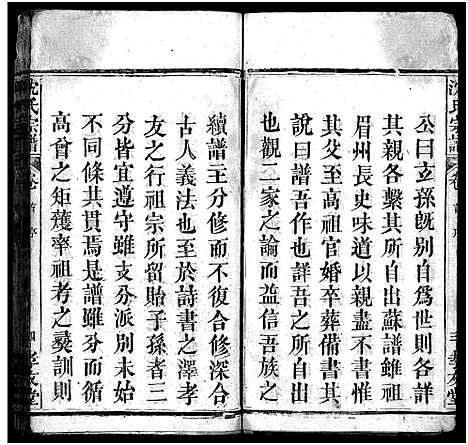 沈氏宗譜 卷首 序 三 孝友堂
公曰玄孫旣別自爲世則各詳
其親各繫其所出蘇譜雖祖
眉州長史味道親盡不書惟
其父至高祖官婚卒葬備書其
說曰譜吾作也詳吾之所自出
也觀二家之論而益信吾族之
續譜主分修而不復合修深合
古人義法也至於詩書之澤孝
友之行祖宗所留貽子孫者三
分皆宜遵守雖支分派別未始
不同條共貫焉是譜雖分而循
高曾之矩矱率祖考之彝訓則
沈氏宗譜 卷首 序 四 孝友堂